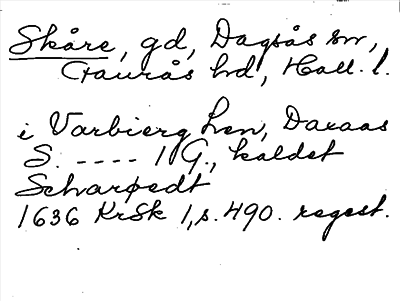 Skåre, gd, Dagsås sn,
Faurås hd, Hall. l.
i Varbierg Len, Daraas
S. ---- 1 G., kaldet
Scharpedt
1636 KrSk 1, s. 490. regest.